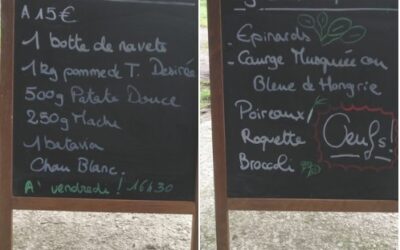 A 15€
1 botte de navets
1 kg pomme de T. Desirée
500g Patate Douce
250g Mache
1 batavia
Chou Blanc.
A' vendredi ! 16h30
Epinards
- Courge Musquée ou
Bleue de Hongrie
Poireaux
Roquette
Brocoli
Oeufs!